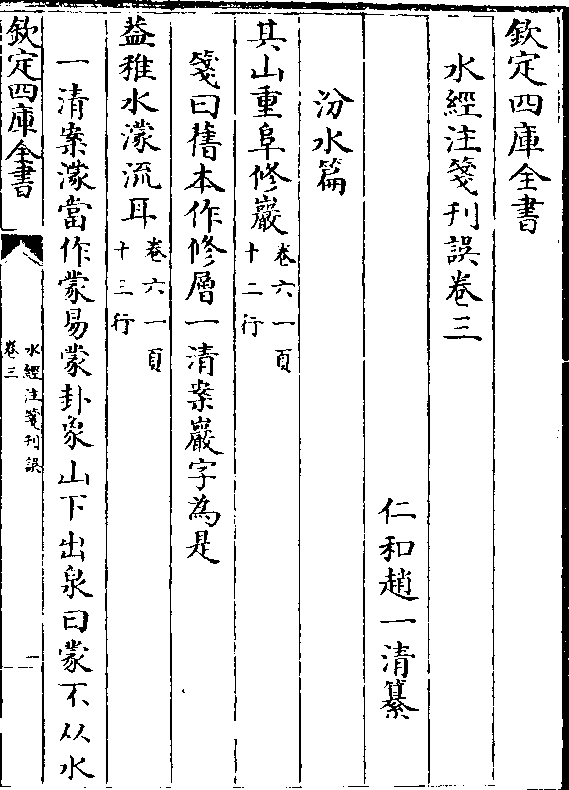 欽定四庫全書
水經注箋刊誤卷三
仁和趙一清纂
汾水篇
其山重阜修巖卷六一頁十二行
箋曰舊本作修層一清案巖字為是
葢稚水濛流耳卷六一頁十三行
一清案濛當作蒙易蒙卦象山下出泉曰蒙不从水
欽定四庫全書
水經注箋刊誤
卷三
一